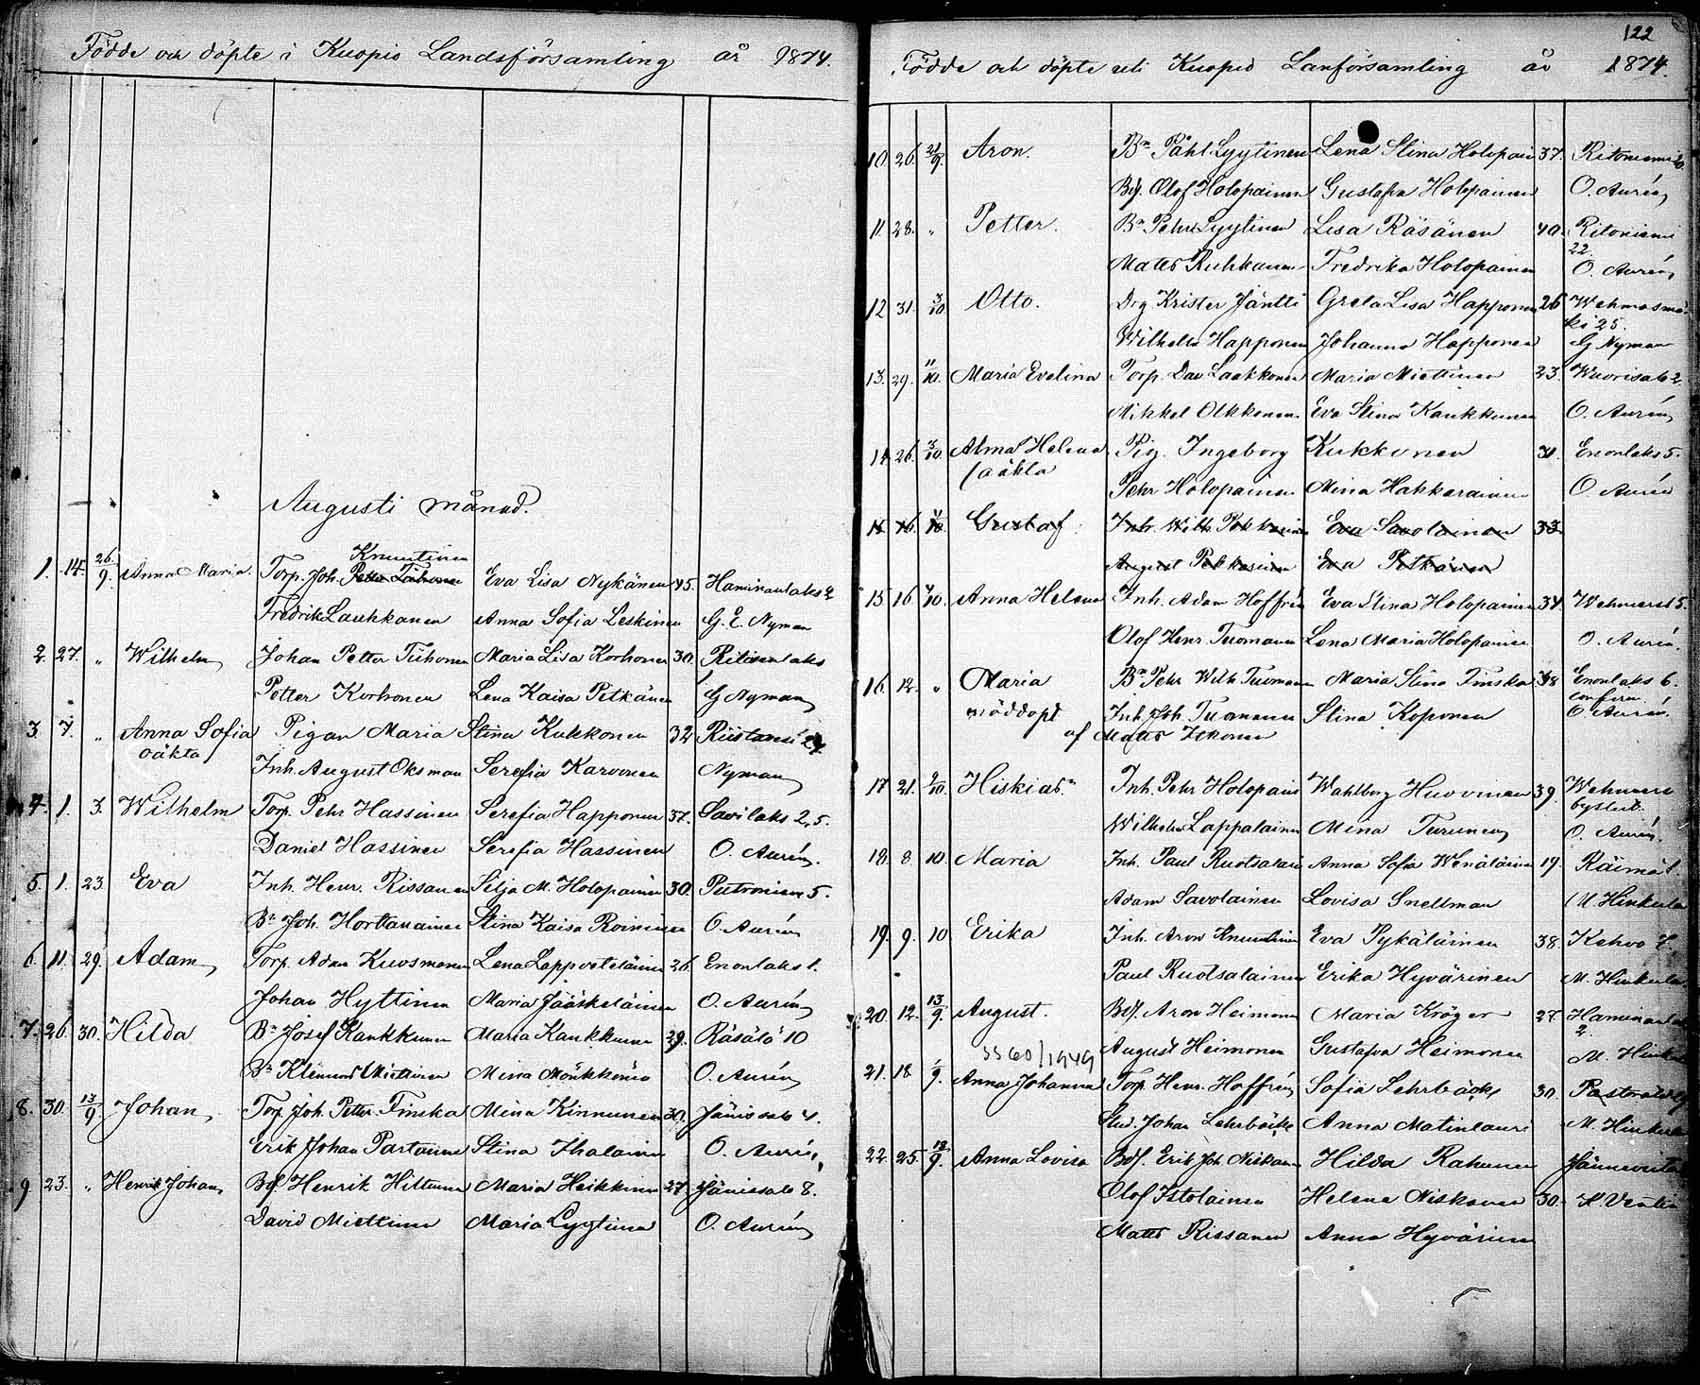 Födde och döpte i Kuopio Landsförsamling år 1874.
Augusti månad.
1. 14. 26/9. Anna Maria. Torp. Joh. Knuutinen Eva Lisa Nykänen 45. Haminanlaks 2
Fredrik Laukkanen Anna Sofia Leskinen G. E. Nyman
2. 27. " Wilhelm Johan Petter Tiihonen Maria Lisa Korhonen 30.
Petter Korhonen Lena Kaisa Pitkänen G Nyman
3. 7. " Anna Sofia Pigan Maria Stina Kukkonen 32
oäkta
Inh. August Oksman Serefia Karvonen Nyman
4. 1. 3. Wilhelm Torp. Pehr Hassinen Serefia Happonen 37. Savilaks 2,5.
Daniel Hassinen Serefia Hassinen O. Aurén.
5. 1. 23. Eva Inh. Henr. Rissanen Silja M. Holopainen 30. 5.
Bn Joh. Hortanainen Stina Kaisa Roininen O Aurén
6. 11. 29. Adam Torp. Adam Kuosmanen Lena Lappveteläinen 26. Enonlaks 1.
Johan Hyttinen Maria Jääskeläinen O. Aurén
7. 26. 30. Hilda Bn Josef Kaukkunen Maria Kaukkunen 29. Räsälä 10
Bn Klemund Miettinen Minna Mönkkönen O. Aurén
8. 30. 13/9 Johan Torp. Joh. Petter Finska Mina Kinnunen 30. Jänissalo 4.
Erik Johan Partanen Stina Ihalainen O. Aurén
9. 23. " Henrik Johan Bdf. Henrik Hiltunen Maria Heikkinen 27. Jänissalo 8.
David Miettinen Maria Lyytinen O. Aurén
122
Födde och döpte uti Kuopio Lanförsamling år 1874.
10. 26. 21/9. Aron. Bn Påhl Lyytinen Lena Stina Holopain 37. Ritoniemi 6.
Bdf. Olof Holopainen Gustafva Holopainen O. Aurén
11. 28. " Petter. Bn Pehr Lyytinen Lisa Räsänen 40. Ritoniemi
22.
Matts Ruhkanen Fredrika Holopainen O. Aurén
12 31. 3/10. Otto. Drg Krister Jäntti Greta Lisa Happonen 26 Wehmasmä-
ki 25.
Wilhelm Happonen Johanna Happonen G Nyman
13. 29. 11/10. Maria Evelina Torp. Dav Laakkonen Maria Miettinen 23. Wuorisalo 2.
Mikkel Olkkonen. Eva Stina Kaukkunen O. Aurén
14 26. 3/10. Alma Helena Pig. Ingeborg Kukkonen Enonlaks 5.
oäkta
Pehr Holopainen Mina Hakkarainen O Aurén
Gustaf Inh. Wilh. Pekkarinen Eva Savolainen 33
August Pekkarinen Eva Pitkänen
15 16 Anna Helena Inh. Adam Hoffrén Eva Stina Holopainen 34 Wehmers 5.
Olof Henr. Tuomanen Lena Maria Holopainen O. Aurén.
16. 12. " Maria Bn Pehr Wilh. Tuomanen Maria Stina Finska 38 Enonlaks 6.
nöddöpt Inh. Joh. Tuomanen Stina Koponen
af Matts Itkonen O Aurén.
17 21. Hiskias. Inh. Pehr Holopain Wahlborg Huovinen 39.
Wilhelm Lappalainen Mina Turunen O. Aurén.
18. 8 10. Maria Inh. Paul Ruotsalain Anna Sofia Wänäläinen 19. Räimä 1.
Adam Savolainen Lovisa Snellman M. Hinkula
19. 9. 10 Erika Inh. Aron Knuutinen Eva Pykäläinen 38. Kehvo 7.
Paul Ruotsalainen Erika Hyvärinen M. Hinkula
20 12. 13/9. August. Bdf. Aron Heimonen Maria Kröger 27 Haminanlaks
2.
August Heimonen Gustafva Heimonen M. Hinkula
3360/1949
21. 18 1/9. Anna Johanna Torp. Henr. Hoffrén Sofia Lehrbäck 30.
Stud. Johan Lehrbäck Anna Matinlauri M. Hinkula
22. 25. 13/9. Anna Lovisa Bdf. Erik Joh Niskanen Hilda Rahunen
Olof Istolainen Helena Niskanen 30.
Matts Rissanen Anna Hyvärinen